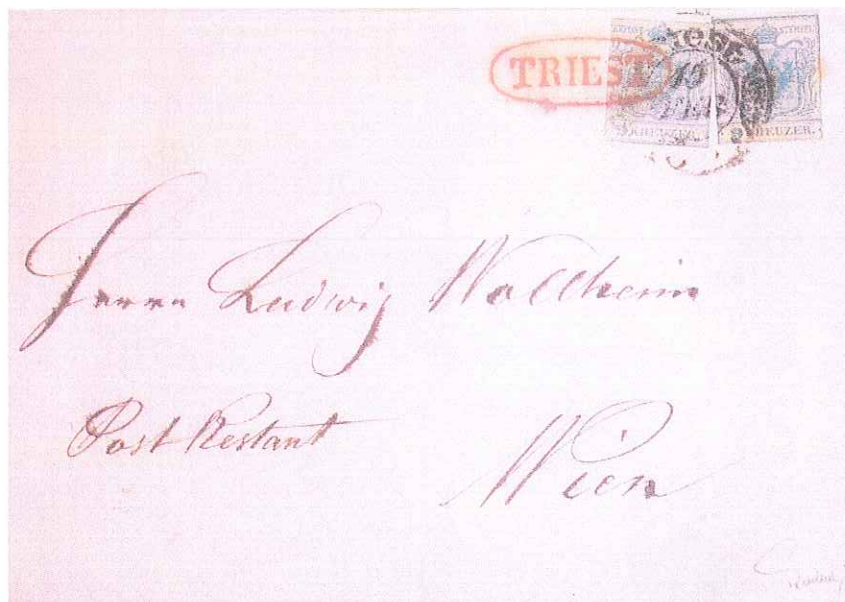 TRIEST
KREUZER. KREUZER.
Herrn Ludwig Wallheim
Post Restant
Wien